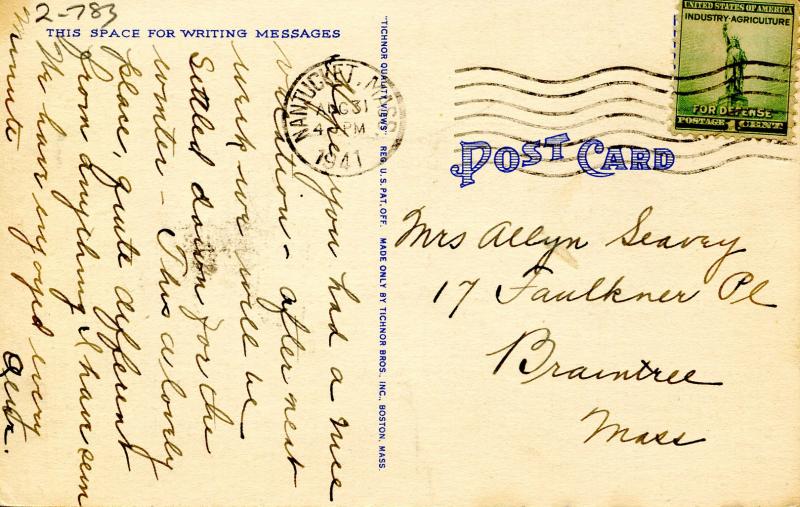 2-783
THIS SPACE FOR WRITING MESSAGES
Hope you had a nice
vacation - after next
week we will be
settled down for the
winter - This a lovely
place, quite different
from anything I have seen
We have enjoyed every
minute
"TICHNOR QUALITY VIEWS" REG. U. S. PAT. OFF. MADE ONLY BY TICHNOR BROS., INC., BOSTON, MASS.
NANTUCKET, MASS.
AUG 31
4 PM
1941
UNITED STATES OF AMERICA
INDUSTRY-AGRICULTURE
FOR DEFENSE
POSTAGE 1 CENT
POST CARD
Mrs Allyn Seavey
17 Faulkner Pl
Braintree
Mass